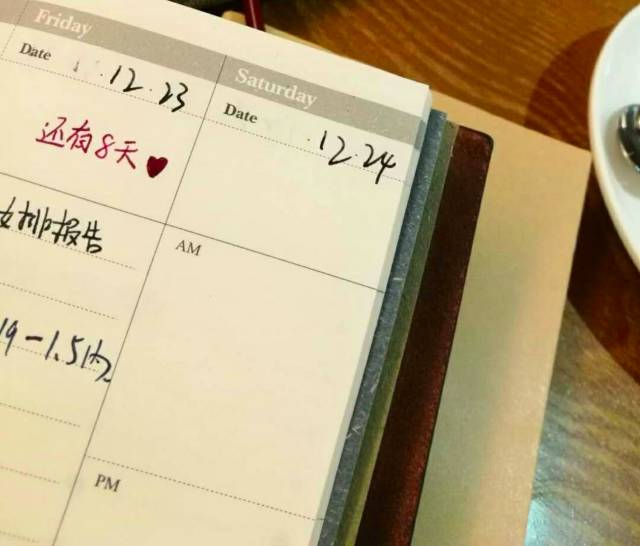 Friday
Date .12.23
还有8天♥
排报告
19-1.5h
Saturday
Date .12.24
AM
PM